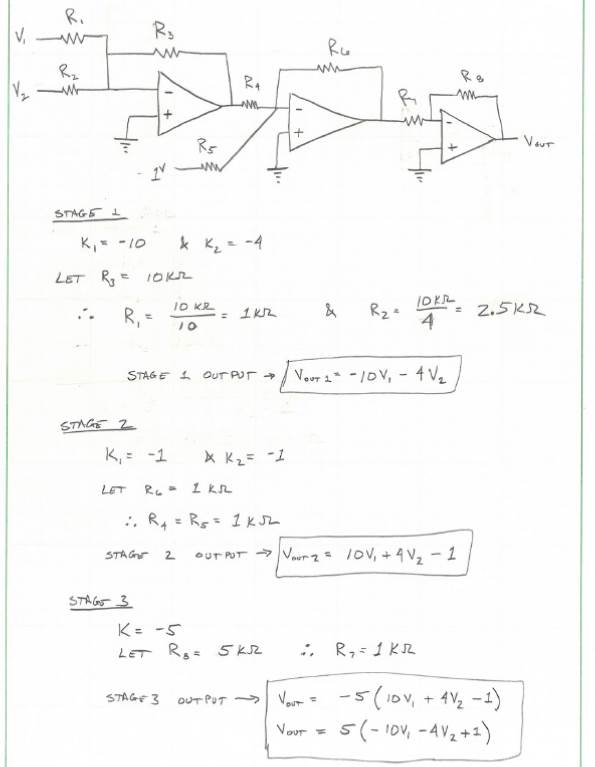 R₁
R₃
V₁
R₂
V₂
R₄
R₆
R₇
R₈
R₅
1V
VOUT
STAGE 1
K₁ = -10 & K₂ = -4
LET R₃ = 10KΩ
∴ R₁ = 10KΩ/10 = 1KΩ & R₂ = 10KΩ/4 = 2.5KΩ
STAGE 1 OUTPUT → VOUT1 = -10V₁ - 4V₂
STAGE 2
K₁ = -1 & K₂ = -1
LET R₆ = 1KΩ
∴ R₄ = R₅ = 1KΩ
STAGE 2 OUTPUT → VOUT2 = 10V₁ + 4V₂ - 1
STAGE 3
K = -5
LET R₈ = 5KΩ ∴ R₇ = 1KΩ
STAGE 3 OUTPUT → VOUT = -5(10V₁ + 4V₂ - 1)
VOUT = 5(-10V₁ - 4V₂ + 1)